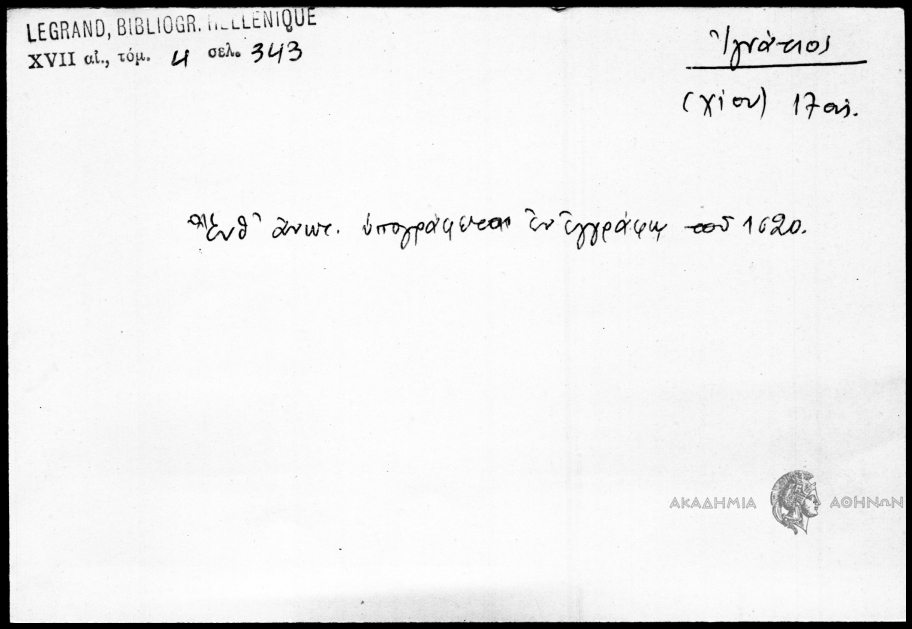 LEGRAND, BIBLIOGR. HELLENIQUE
XVII αἰ., τόμ. 4 σελ. 343
Ἰγνάτιος
(Χίου) 17 αἰ.
Ἔνθ' ἀνωτ. ὑπογράφεται ἐν ἐγγράφῳ τοῦ 1620.
ΑΚΑΔΗΜΙΑ ΑΘΗΝΩΝ